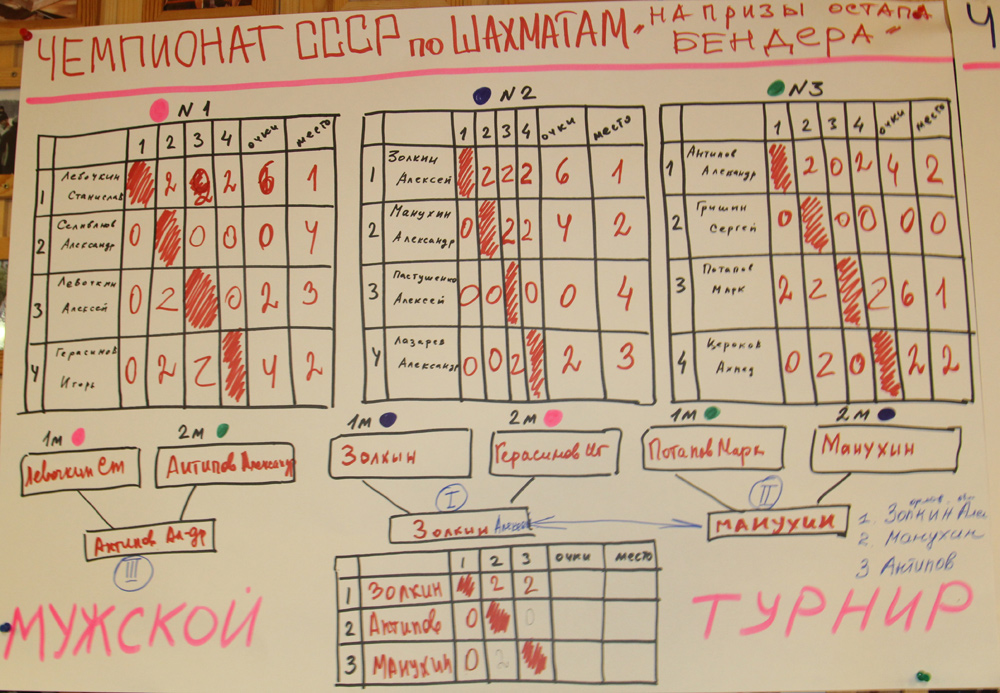 ЧЕМПИОНАТ СССР по ШАХМАТАМ "НА ПРИЗЫ ОСТАПА
БЕНДЕРА"
N1
1 2 3 4 ОЧКИ МЕСТО
1 Левочкин Станислав 2 2 2 6 1
2 Селиванов Александр 0 0 0 0 4
3 Левочкин Алексей 0 2 0 2 3
4 Герасимов Игорь 0 2 2 4 2
N2
1 2 3 4 ОЧКИ МЕСТО
1 Золкин Алексей 2 2 2 6 1
2 Манухин Александр 0 2 2 4 2
3 Пастушенко Алексей 0 0 0 0 4
4 Лазарев Александр 0 0 2 2 3
N3
1 2 3 4 ОЧКИ МЕСТО
1 Антипов Александр 2 0 2 4 2
2 Гришин Сергей 0 0 0 0 0
3 Потапов Марк 2 2 2 6 1
4 Ахмед 0 2 0 2 2
1м 2м
Левочкин Ст Антипов Александр
Антипов Ал-др
III
1м 2м
Золкын Герасимов Иг
I
Золкин
1м 2м
Потапов Марк Манухин
II
МАНУХИН
1. Золкин
2. Манухин
3 Антипов
1 2 3 ОЧКИ МЕСТО
1 Золкин 2 2
2 Антипов 0 0
3 Манухин 0 2
МУЖСКОЙ ТУРНИР
Ч